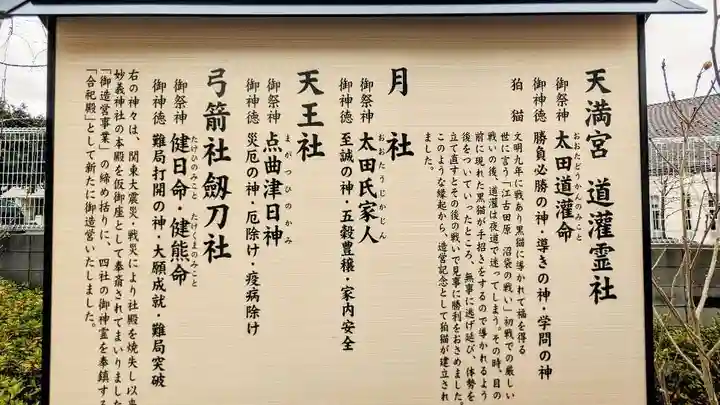 天満宮 道灌霊社
御祭神 太田道灌命
おおたどうかんのみこと
御神徳 勝負必勝の神・導きの神・学問の神
狛猫 文明九年に戦あり黒猫に導かれて福を得る
世に言う「江古田原 沼袋の戦い」初戦での厳しい
戦いの後、道灌は夜道で迷ってしまう。その時、目の
前に現れた黒猫が手招きをするので導かれるよう
後をついていったところ、無事に逃げ延び、体勢を
立て直すとその後の戦いで見事に勝利をおさめました。
このような縁起から、造営記念として狛猫が建立され
ました。
月社
御祭神 太田氏家人
おおたうじかじん
御神徳 至誠の神・五穀豊穣・家内安全
天王社
御祭神 点曲津日神
まがつひのかみ
御神徳 災厄の神・厄除け・疫病除け
弓箭社 劔刀社
御祭神 健日命・健熊命
たけひのみこと たけくまのみこと
御神徳 難局打開の神・大願成就・難局突破
右の神々は、関東大震災・戦災により社殿を焼失し以来
妙義神社の本殿を仮御座として奉斎されてまいりました
「御造営事業」の締め括りに、四社の御神霊を奉鎮する
「合祀殿」として新たに御造営いたしました。